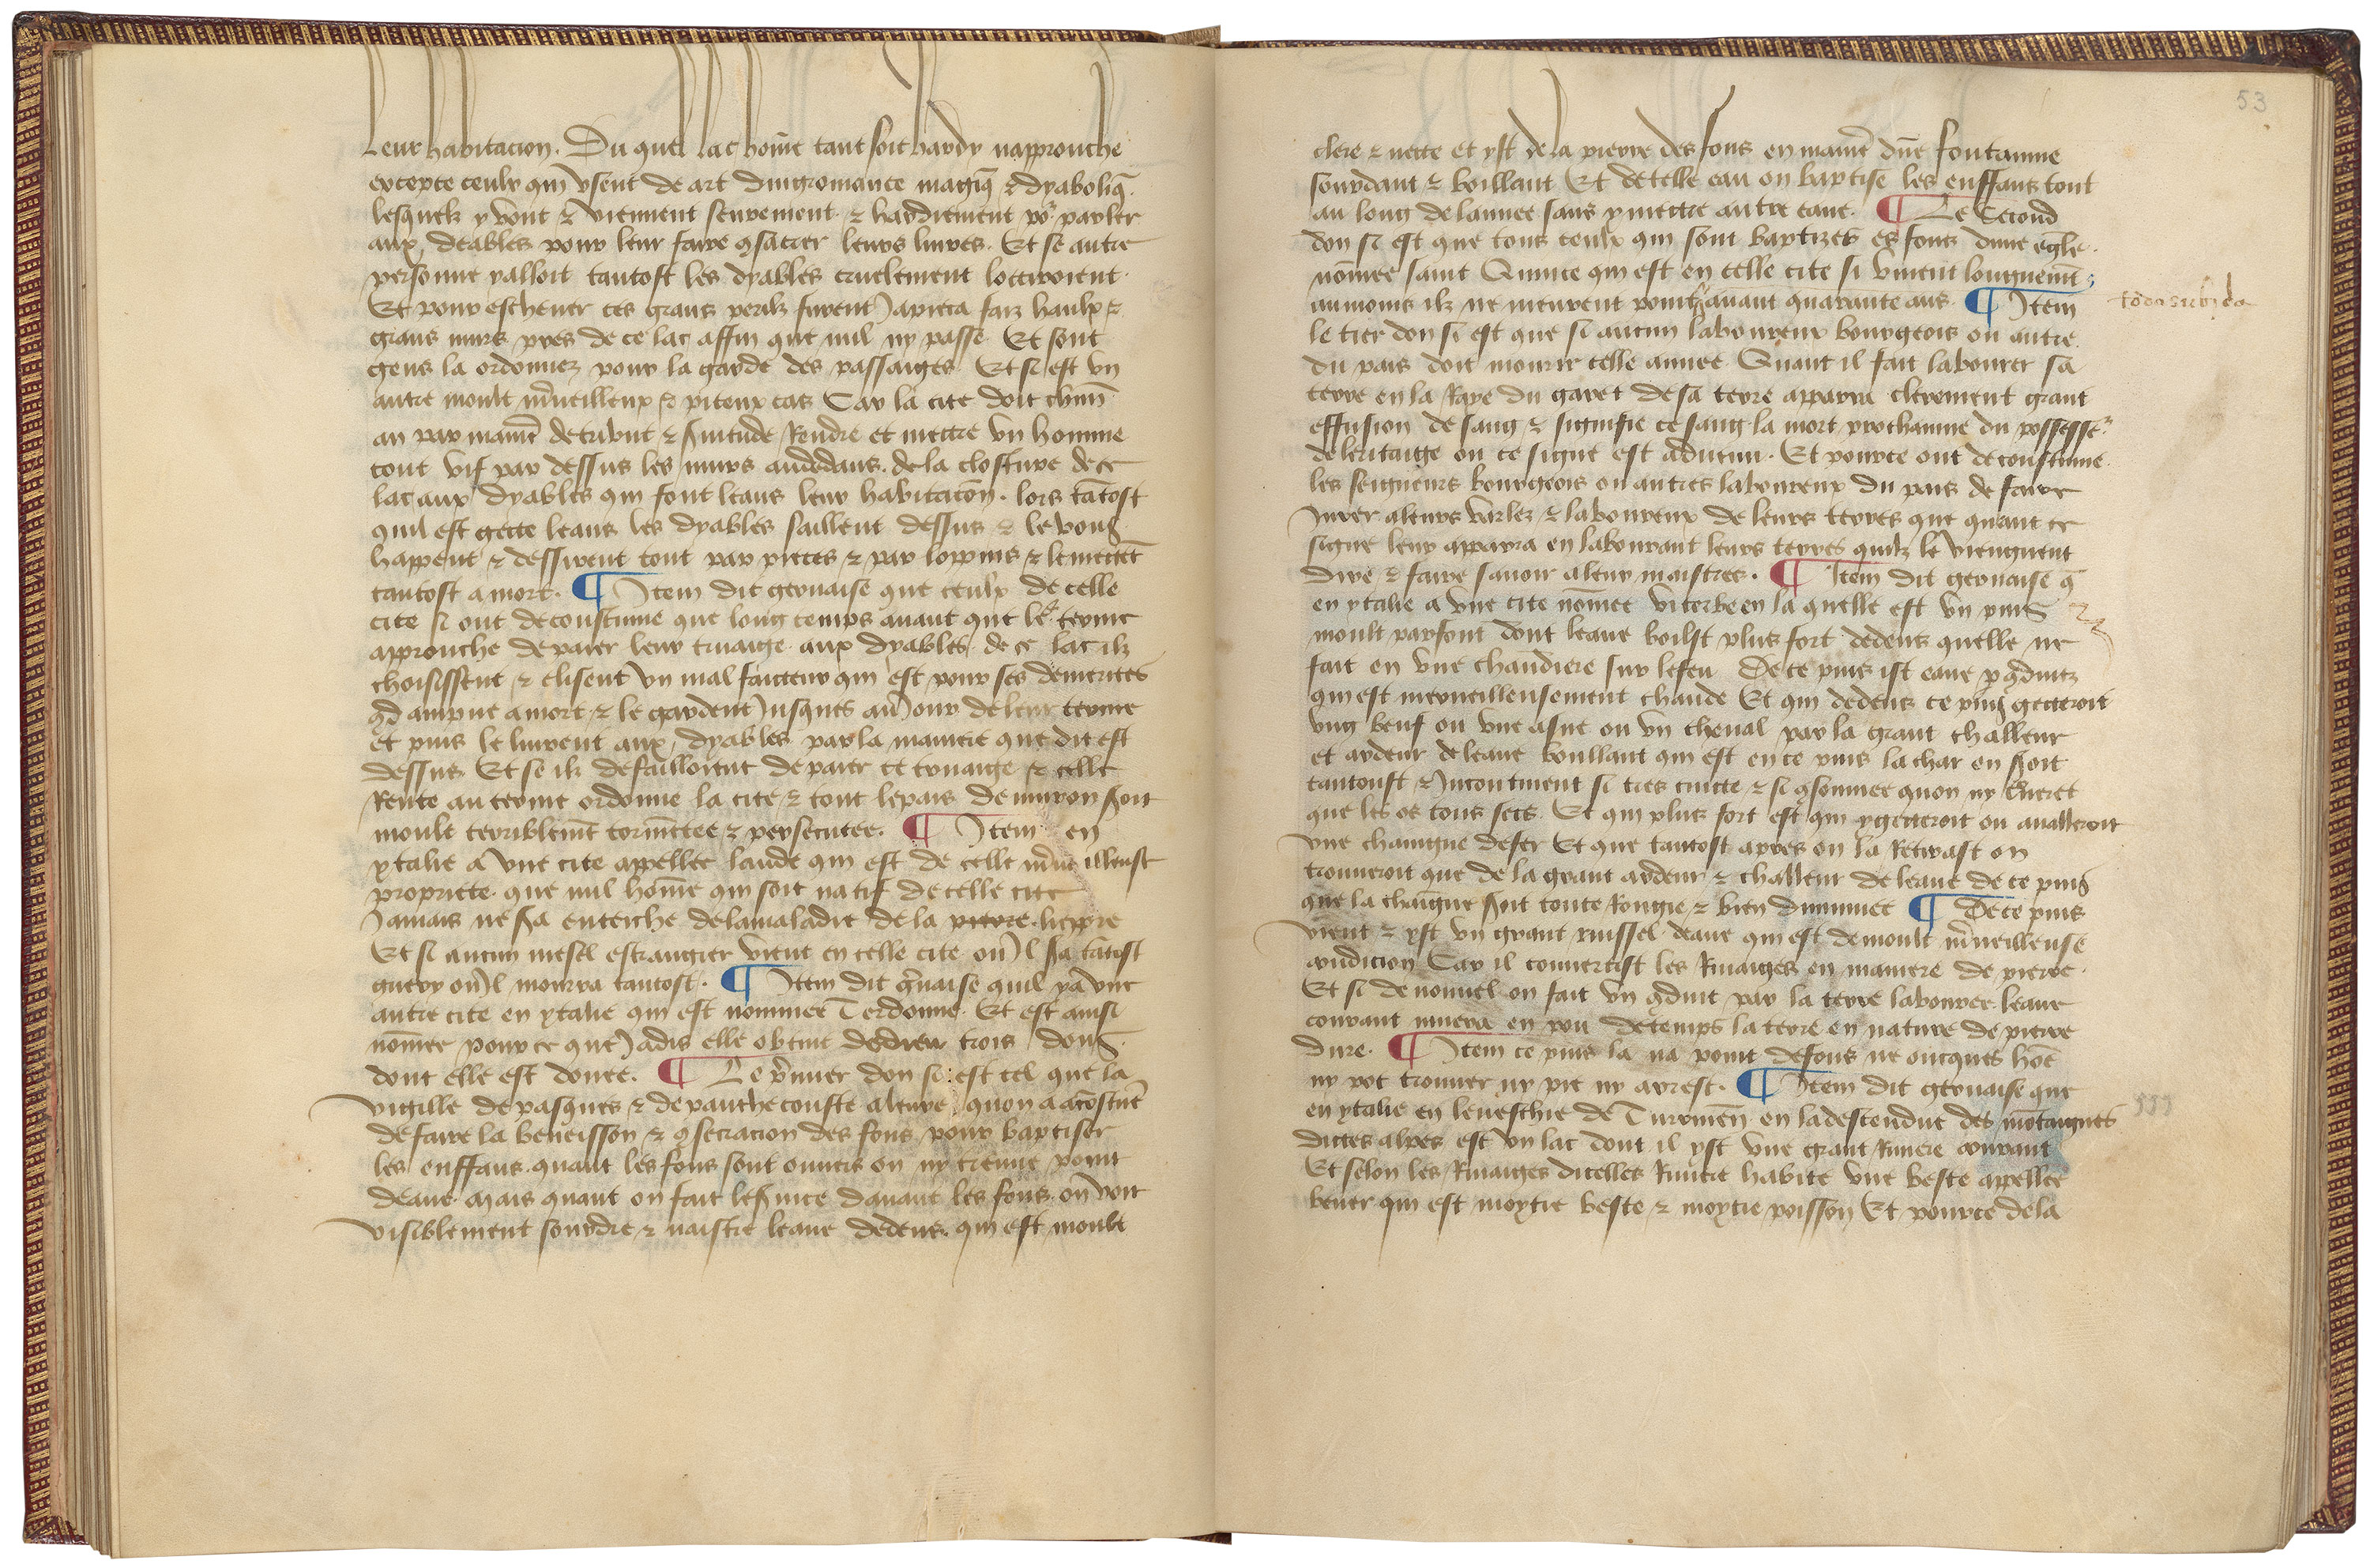 Leur habitacion. Du quel lac hōme tant soit hardy napprouche
excepte ceulx qui vsent de art dingromance magiq̄ & dyaboliq̄.
lesquelz y vont & viennent seurement & hardiement po᷑ parler
aux deables pour leur faire ꝯsacrer leurs liures. Et se autre
personne yalloit tantost les dyables cruelement locciroient.
Et pour escheuer ces grans perilz furent Japieca faiz haulx &
grans murs pres de ce lac affin que nul ny passe Et sont
gens la ordonnez pour la garde des passaiges Et si est vn
autre moult m̄ueilleux & piteux cas Car la cite doit chūn
an par manie᷑ de tribut & ſuitude Rendre et mettre vn homme
tout vif par dessus les murs au dedans de la closture de ce
lac aux dyables qui font leans leur habitacōn. lors tātost
quil est gette leans les dyables saillent dessus & le vont
happent & dessirent tout par pieces & par loppins & le mettēt
tantost a mort. ¶ Item dit geruaise que ceulx de celle
cite si ont de coustume que long temps auant que le terme
approuche de paier leur truaige aux dyables de ce lac ilz
choisissent & elisent vn mal faicteur qui est pour ses demerites
ꝯdampne a mort & le gardent Jusques au Jour de leur terme
et puis le liurent aux dyables par la maniere que dit est
dessus Et se ilz defailloient de paier ce truaige & celle
Rente au terme ordonne la cite & tout le pais denuiron ſoit
moult terriblemēt tormētee & persecutee. ¶ Item en
ytalie a vne cite appellee laude qui est de celle m̄ueilleuse
propriete que nul hōme qui soit natif de celle cite
Jamais ne ſa enteiche de la maladie de la pierre lieppre
Et si aucun mesel estrangier vient en celle cite ou Il ſa tātost
guery ou Il mourra tantost. ¶ Item dit g̃uaise quil ya vne
autre cite en ytalie qui est nommee Terdonne. Et est ainsi
nōmee pour ce que Jadis elle obtint de dieu trois dons
dont elle est douee. ¶ Le p̄mier don si est tel que la
vigille de pasques & de panthecouste a leure quon a acostume
de faire la beneisson & ꝯsecracion des fons pour baptiser
les enffans quant les fons sont ouuers on ny treuue point
deaue. mais quant on fait le ſuice dauant les fons on voit
visiblement sourdre & naistre leaue dedens qui est moult
53
clere & nette et yst de la pierre des fons en manie᷑ dūe fontanne
sourdant & boillant Et de telle eau on baptise les enffans tout
au long de lannee sans y mettre autre eaue. ¶ Le Second
don si est que tous ceulx qui sont baptizes es fons dune eg̃le
nōmee saint Quince qui est en celle cite si viuent longuemēt
aumoins ilz ne meurent point auant quarante ans. ¶ Item
le tier don si est que si aucun laboureux bourgeois ou autre
du pais doit mourir celle annee Quant il fait labourer sa
terre en la Raye du garet de sa terre apparra clerement grant
effusion de sang & signifie ce sang la mort prochaine du possesse᷑
de leritaige ou ce signe est aduenu. Et pource ont de coustume
les seigneurs bourgeois ou autres laboureux du pais de faire
Jurer a leurs varlez & laboureux de leurs terres que quant ce
signe leur apparra en labourant leurs terres quilz le viengnent
dire & faire sauoir a leur maistres. ¶ Item dit geruaise q̄
en ytalie a vne cite nōmee viterbe en la quelle est vn puis
moult parfont dont leaue boilst plus fort dedens quelle ne
fait en vne chaudiere sur le feu De ce puis ist eaue p ꝯduitz
qui est merueilleusement chaude Et qui dedens ce puis getteroit
vng beuf ou vne asne ou vn cheual par la grant challeur
et ardeur de leaue boullant qui est en ce puis la char en ſoit
tantoust & Incontinent si tres cuitte & si ꝯsommee quon ny verret
que les os tous secs. Et qui plus fort est qui y getteroit ou aualleroit
vne chaingne de fer Et que tantost apres on la Retirast on
trouueroit que de la grant ardeur & challeur de leaue de ce puis
que la chaigne ſoit toute Rongie & bien diminuee ¶ De ce puis
vient & yst vn grant ruissel deaue qui est de moult m̄ueilleuse
ꝯndicion Car il conuertist les Riuaiges en maniere de pierre.
Et si de nouuel on fait vn ꝯduit par la terre labouree leaue
courant muera en pou de temps la terre en nature de pierre
dure. ¶ Item ce puis la na point de fons ne oncques hōe
ny pot trouuer ny pie ny arrest. ¶ Item dit geruaise que
en ytalie en leueschie de Turomen̄ en la descendue des mōtaignes
dictes alpes est vn lac dont il yst vne grant Riuiere courant
Et selon les Riuaiges dicelles Riuiere habite vne beste appellee
beuer qui est moytie beste & moytie poisson Et pource de la